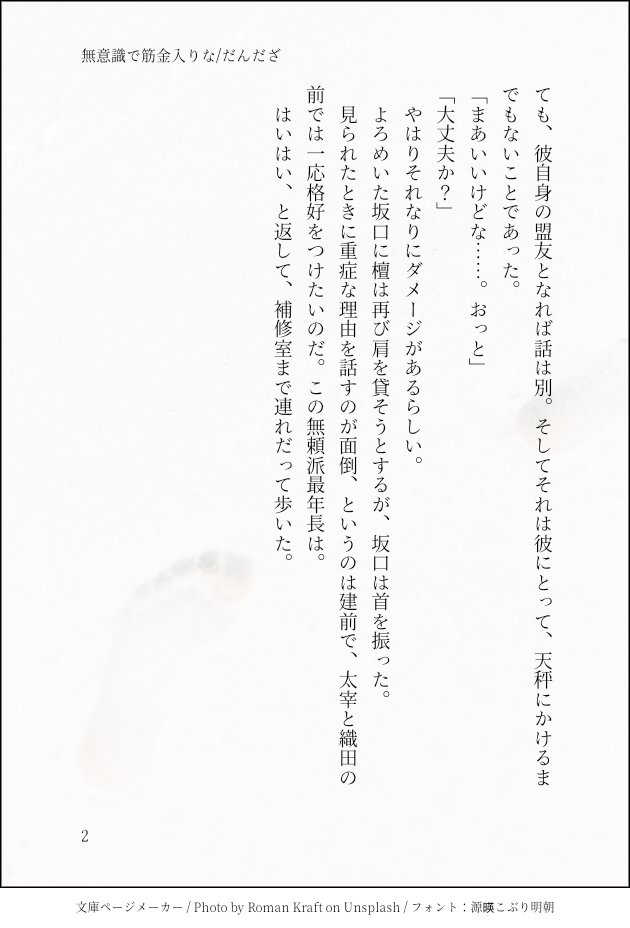 無意識で筋金入りな/だんだざ
ても、彼自身の盟友となれば話は別。そしてそれは彼にとって、天秤にかけるま
でもないことであった。
「まあいいけどな……。おっと」
「大丈夫か？」
やはりそれなりにダメージがあるらしい。
よろめいた坂口に檀は再び肩を貸そうとするが、坂口は首を振った。
見られたときに重症な理由を話すのが面倒、というのは建前で、太宰と織田の
前では一応格好をつけたいのだ。この無頼派最年長は。
はいはい、と返して、補修室まで連れだって歩いた。
2
文庫ページメーカー / Photo by Roman Kraft on Unsplash / フォント：源暎こぶり明朝